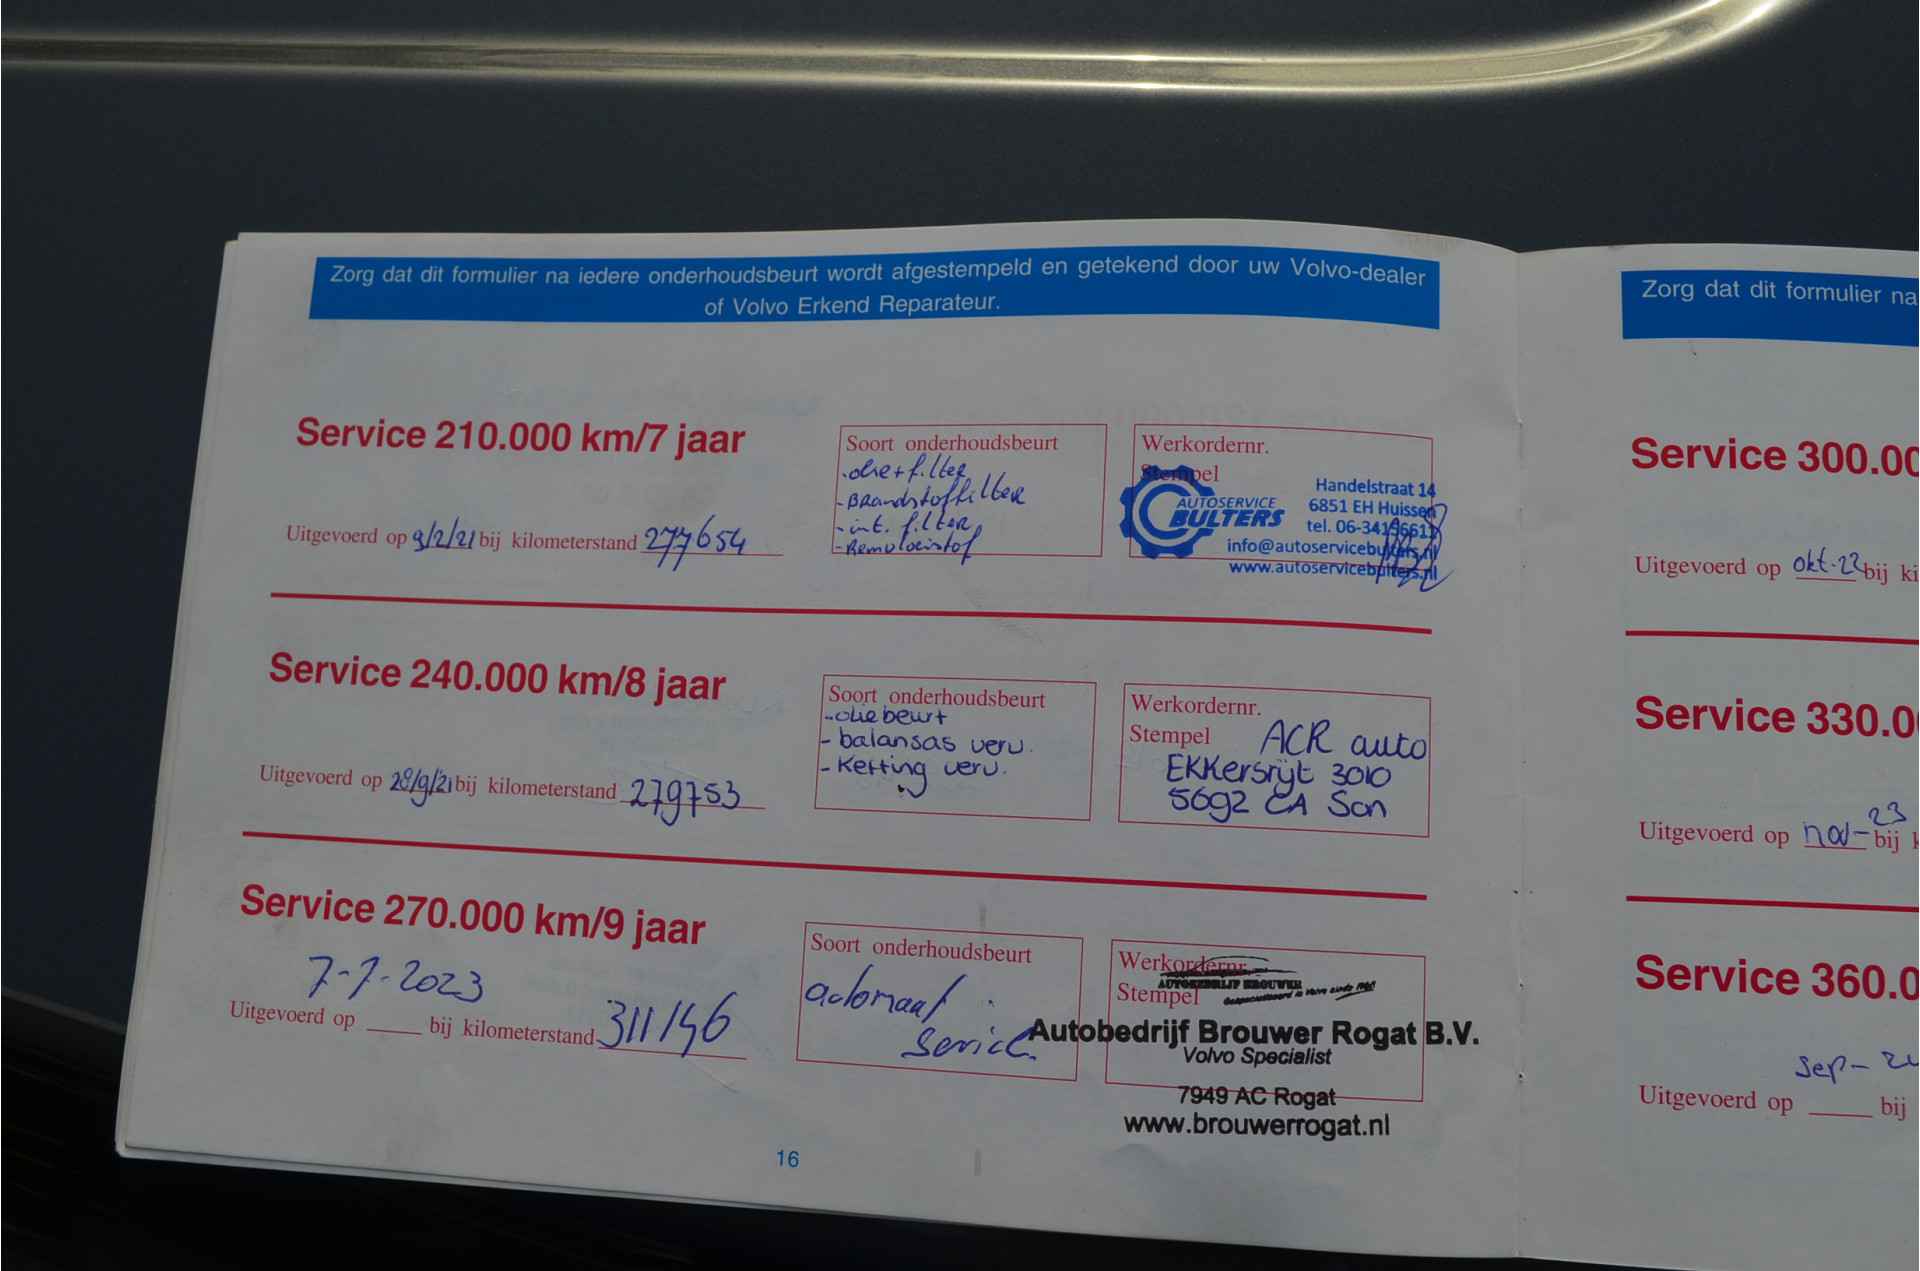 Zorg dat dit formulier na iedere onderhoudsbeurt wordt afgestempeld en getekend door uw Volvo-dealer
of Volvo Erkend Reparateur.
Service 210.000 km/7 jaar
Uitgevoerd op 9/2/21 bij kilometerstand 277654
Soort onderhoudsbeurt
-olie+filter
-Brandstoffilter
-int. filter
-Remvloeistof
Werkordernr.
Stempel
AUTOSERVICE
BULTERS
Handelstraat 14
6851 EH Huissen
tel. 06-34156611
info@autoservicebulters.nl
www.autoservicebulters.nl
Service 240.000 km/8 jaar
Uitgevoerd op 28/9/21 bij kilometerstand 279753
Soort onderhoudsbeurt
-oliebeurt
- balansas verv.
- Ketting verv.
Werkordernr.
Stempel ACR auto
EKKersrijt 3010
5692 CA Son
Service 270.000 km/9 jaar
7-7-2023
Uitgevoerd op bij kilometerstand 311146
Soort onderhoudsbeurt
automaat
Service
Werkordernr.
Stempel
AUTOBEDRIJF BROUWER
Autobedrijf Brouwer Rogat B.V.
Volvo Specialist
7949 AC Rogat
www.brouwerrogat.nl
16
Zorg dat dit formulier na
Service 300.00
Uitgevoerd op okt-22 bij ki
Service 330.0
23
Uitgevoerd op nov- bij k
Service 360.0
sep-24
Uitgevoerd op bij